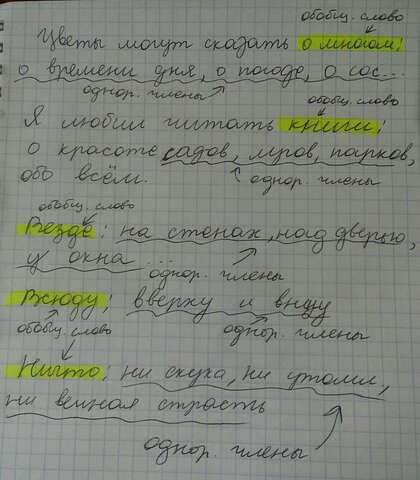 обобщ. слово
Цветы могут сказать о многом:
о времени дня, о погоде, о сос...
однор. члены
обобщ. слово
Я любил читать книги:
о красоте садов, мров, парков,
обо всём.
однор. члены
обобщ. слово
Везде: на стенах, над дверью,
у окна...
однор. члены
Всюду: вверху и внизу
обобщ. слово
однор. члены
Ничто: ни скука, ни утомл,
ни вечная страсть
однор. члены